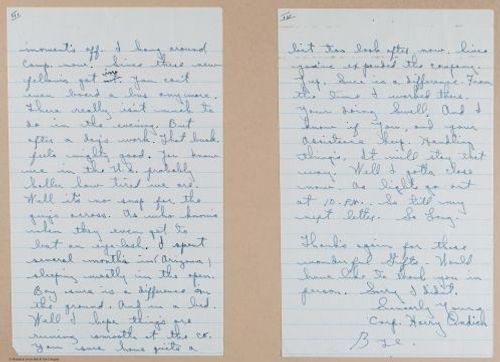 III
moment's off. I hang around
camp now. Since these new
fellows got in, you can't
even board a bus anymore.
There really isn't much to
do in the evening. But
after a day's work. That bunk
feels mighty good. You know
we in the U.S. probably
holler how tired we are.
Well it's no snap for the
guys across. As who knows
when they even get to
bat an eyelash. I spent
several months in (Arizona)
sleeping mostly in the open.
Boy sure is a difference on
the ground. And in a bed.
Well I hope things are
running smooth at the co.
You sure have quite a
IIII
bit too look after now. Since
you've expand'd the company.
Yup. Sure is a difference From
the time I worked there.
Your doing swell. And I
know if You, and your
assistance keep. Handling
things. It will stay that
way. Well I gotta close
now. As lights go out
at 10. P.M. So till my
next letter. So Long.
Thanks again for these
wonderful Gifts. Would
have like to thank you in
person. Sorry I didn't.
Sincerly Yours
Corp. Harry
Bye.